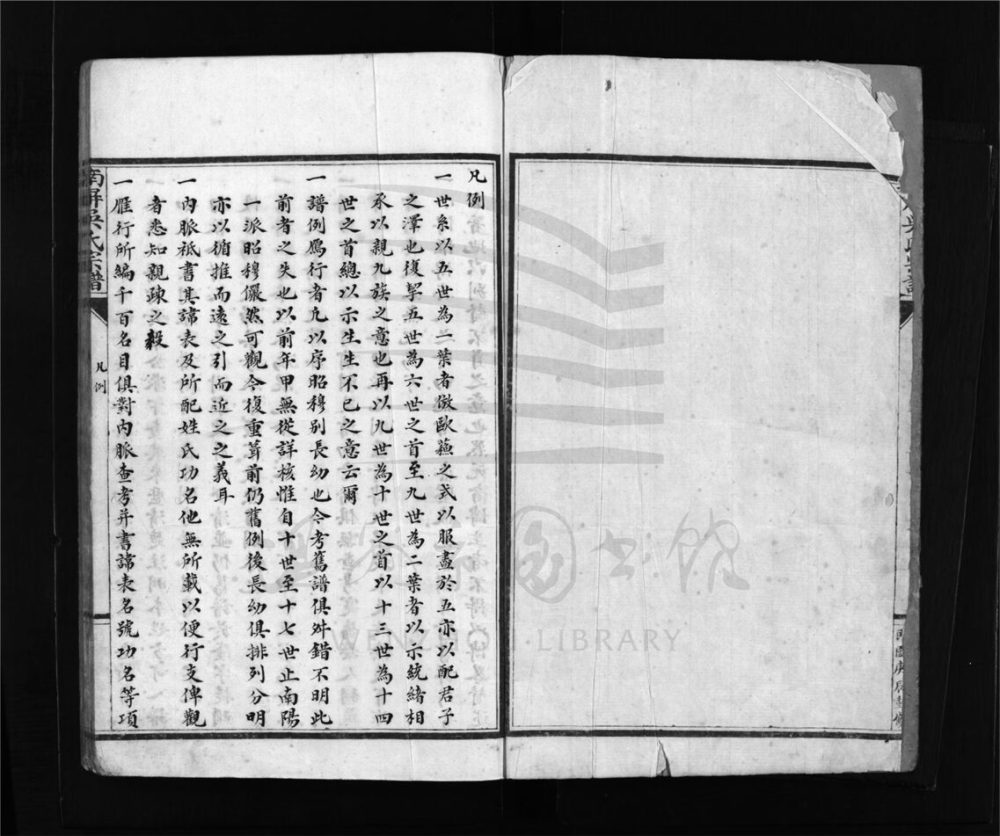 凡例
一世系以五世為一葉者倣歐蘓之式以服盡於五亦以配君子
之澤也復挈五世為六世之首至九世為二葉者以示統緒相
承以親九族之意也再以九世為十世之首以十三世為十四
世之首總以示生生不已之意云爾
一譜例鴈行者凡以序昭穆別長幼也今考舊譜俱舛錯不明此
前者之失也以前年甲無從詳核惟自十世至十七世止南陽
一派昭穆儼然可觀今復重葺前仍舊例後長幼俱排列分明
亦以循推而遠之引而近之之義耳
一內脈祗書其諱表及所配姓氏功名他無所載以便行支俾觀
者悉知親疎之殺
一雁行所編千百名目俱對內脈查考并書諱表名號功名等項
南屏吳氏宗譜
凡例
LIBRARY